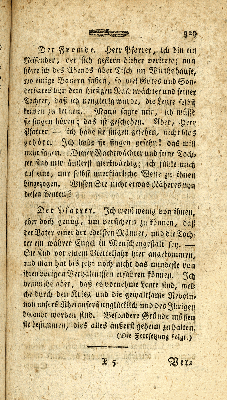 329
Der Fremde. Herr Pfarrer, ich bin ein
Reisender, der sich gestern hieher verirrte; nun
hörte ich des Abends über Tisch im Wirthshause,
wo einige Bauern saßen, so viel Gutes und Son-
derbares von dem hiesigen Nachtwächter und seiner
Tochter, daß ich neugierig wurde, die Leute
kennen zu lernen. Man sagte mir, ich müßte
sie singen hören; das ist geschehen. Aber, Herr
Pfarrer — ich habe sie singen gehört, nicht
gehört. Ich habe sie singen gesehn! das will
man sagen. Dieser Nachtwächter und seine Toch-
ter sind mir äußerst merkwürdig; ich fühle mich
auf eine, mir selbst unerklärliche Weise zu ihnen
hingezogen. Wissen Sie nichts Nähers von
diesen Leuten?
Der Pfarrer. Ich weiß wenig von ihnen,
aber doch genug, um versichern zu können, daß
der Vater einer der edelsten Männer, und die Toch-
ter ein wahrer Engel in Menschengestalt sey.
Sie sind vor einem Vierteljahr hier angekommen,
und man hat bis jetzt noch nicht das mindeste von
ihren vorigen Verhältnissen erfahren können. Ich
vermuthe aber, daß es vornehme Leute sind, wel-
che durch den Krieg und die gewaltsame Revolu-
tion unsers Überrheins unglücklich und des Ihrigen
beraubt worden sind. Besondere Gründe müssen
sie bestimmen, dies alles äußerst geheim zu halten.
(Die Fortsetzung folgt.)
X 5 Ver-